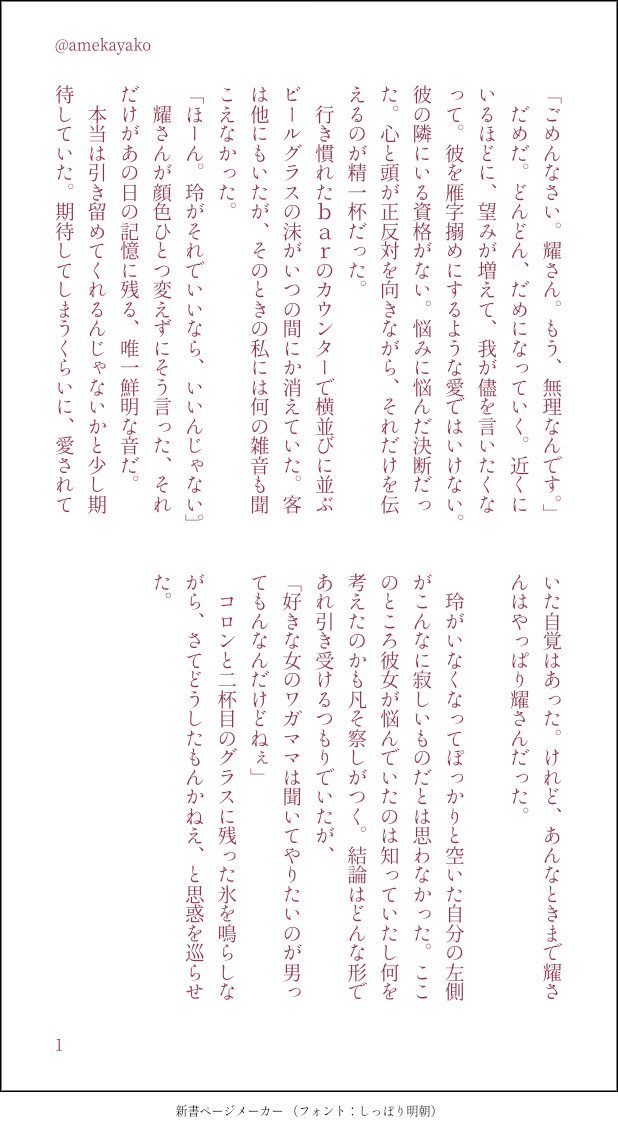 @amekayako
「ごめんなさい。耀さん。もう、無理なんです。」
　だめだ。どんどん、だめになっていく。近くに
いるほどに、望みが増えて、我が儘を言いたくな
って。彼を雁字搦めにするような愛ではいけない。
彼の隣にいる資格がない。悩みに悩んだ決断だっ
た。心と頭が正反対を向きながら、それだけを伝
えるのが精一杯だった。
　行き慣れたｂａｒのカウンターで横並びに並ぶ
ビールグラスの沫がいつの間にか消えていた。客
は他にもいたが、そのときの私には何の雑音も聞
こえなかった。
「ほーん。玲がそれでいいなら、いいんじゃない」
　耀さんが顔色ひとつ変えずにそう言った、それ
だけがあの日の記憶に残る、唯一鮮明な音だ。
　本当は引き留めてくれるんじゃないかと少し期
待していた。期待してしまうくらいに、愛されて
いた自覚はあった。けれど、あんなときまで耀さ
んはやっぱり耀さんだった。
　玲がいなくなってぽっかりと空いた自分の左側
がこんなに寂しいものだとは思わなかった。ここ
のところ彼女が悩んでいたのは知っていたし何を
考えたのかも凡そ察しがつく。結論はどんな形で
あれ引き受けるつもりでいたが、
「好きな女のワガママは聞いてやりたいのが男っ
てもんなんだけどねぇ」
　コロンと二杯目のグラスに残った氷を鳴らしな
がら、さてどうしたもんかねえ、と思惑を巡らせ
た。
1
新書ページメーカー（フォント：しっぽり明朝）